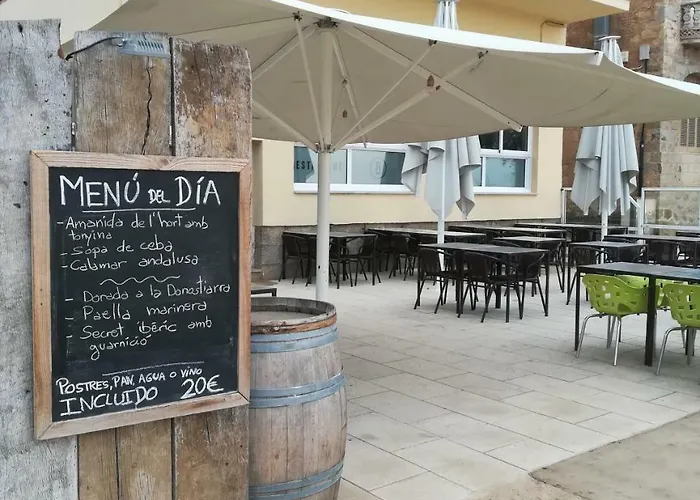 MENÚ DEL DÍA
- AMANIDA DE L'HORT AMB
TONYINA
- SOPA DE CEBA
- CALAMAR ANDALUSA
- DORADA A LA DONOSTIARRA
- PAELLA MARINERA
- SECRET IBÈRIC AMB
GUARNICIÓ
POSTRES, PAN, AGUA O VINO
INCLUIDO 20€